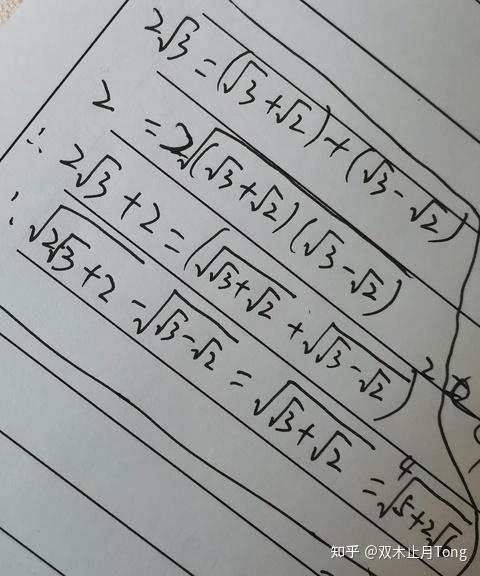 2√3 = (√3+√2) + (√3-√2)
2 = 2√((√3+√2)(√3-√2))
∴ 2√3 + 2 = (√(√3+√2) + √(√3-√2))²
∴ √(2√3+2) - √(√3-√2) = √(√3+√2) = ⁴√(5+2√6)
知乎 @双木止月Tong